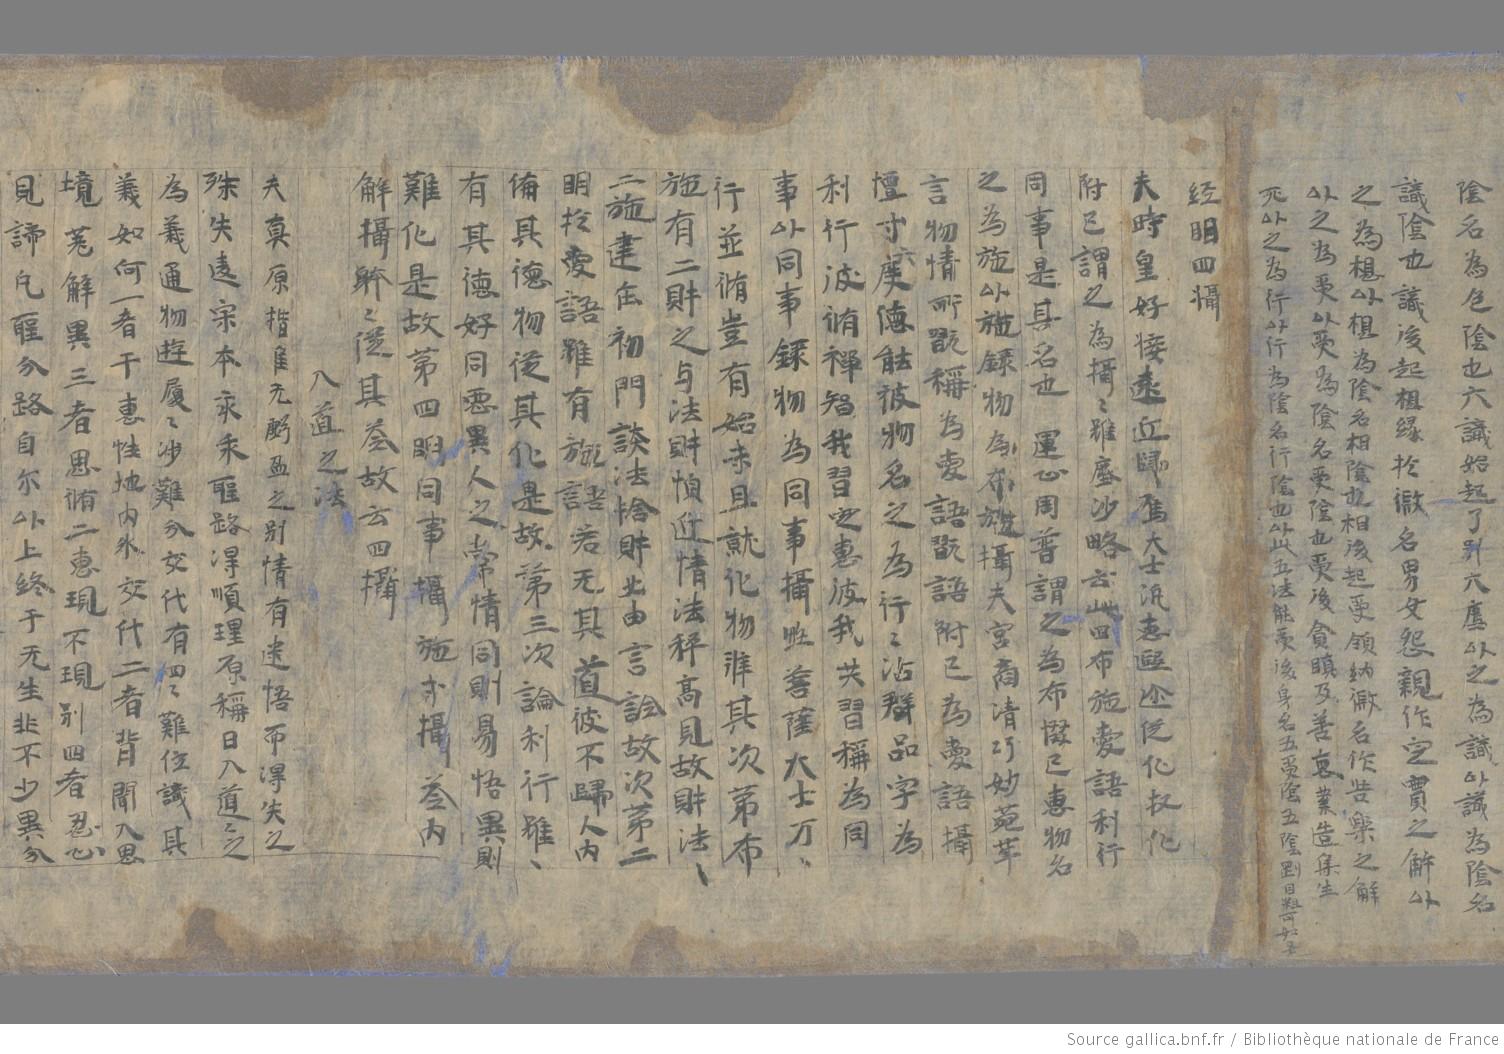 陰名為色陰也六識始起了別六塵以之為識以識為陰名
識陰也識後起想緣於徵名男女怨親作定實之解以
之為想以想為陰名相陰也相後起受領納徵名作苦樂之解
以之為受以受為陰名受陰也受後貪瞋及善惡業造集生
死以之為行以行為陰名行陰也以此五法能後身名五陰五陰
經明四攝
夫時皇好接遠近歸大士汎化化
附已謂之為攝〻雖塵沙略云此四布施愛語利行
同事是其名也運心周普謂之為布惙已惠物名
之為施以施錄物為布施攝夫宮商清巧妙莞革
言物情所翫稱為愛語翫語附已為愛語攝
檀寸度德能彼物名之為行〻沾群品字為
利行彼脩禪智我習空惠彼我共習稱為同
事以同事錄物為同事攝然菩薩大士万〻
行並脩豈有始末且就化物准其次第布
施有二財之与法財情近情法秤高見故財法〻
二施建在初門談法捨財必由言說故次第二
明於愛語雖有施語若无其道彼不歸人內
備其德物從其化是故第三次論利行雖〻
有其德好同惡異人之常情同則易悟異則
難化是故第四明同事攝施求攝盖內
解攝躰〻從其盖故云四攝
八道之法
夫真原楷隹无夥盈之別情有迷悟而淂失之
殊失遠宗本求乖聖路淂順理原稱曰入道〻之
為義通物遊履〻涉難分交代有四〻難位識其
義如何一者干惠性地內外交代二者背聞入思
境荒解異三者思脩二惠現不現別四者忍心
見諦凡聖分路自尒以上終于无生非不少異分